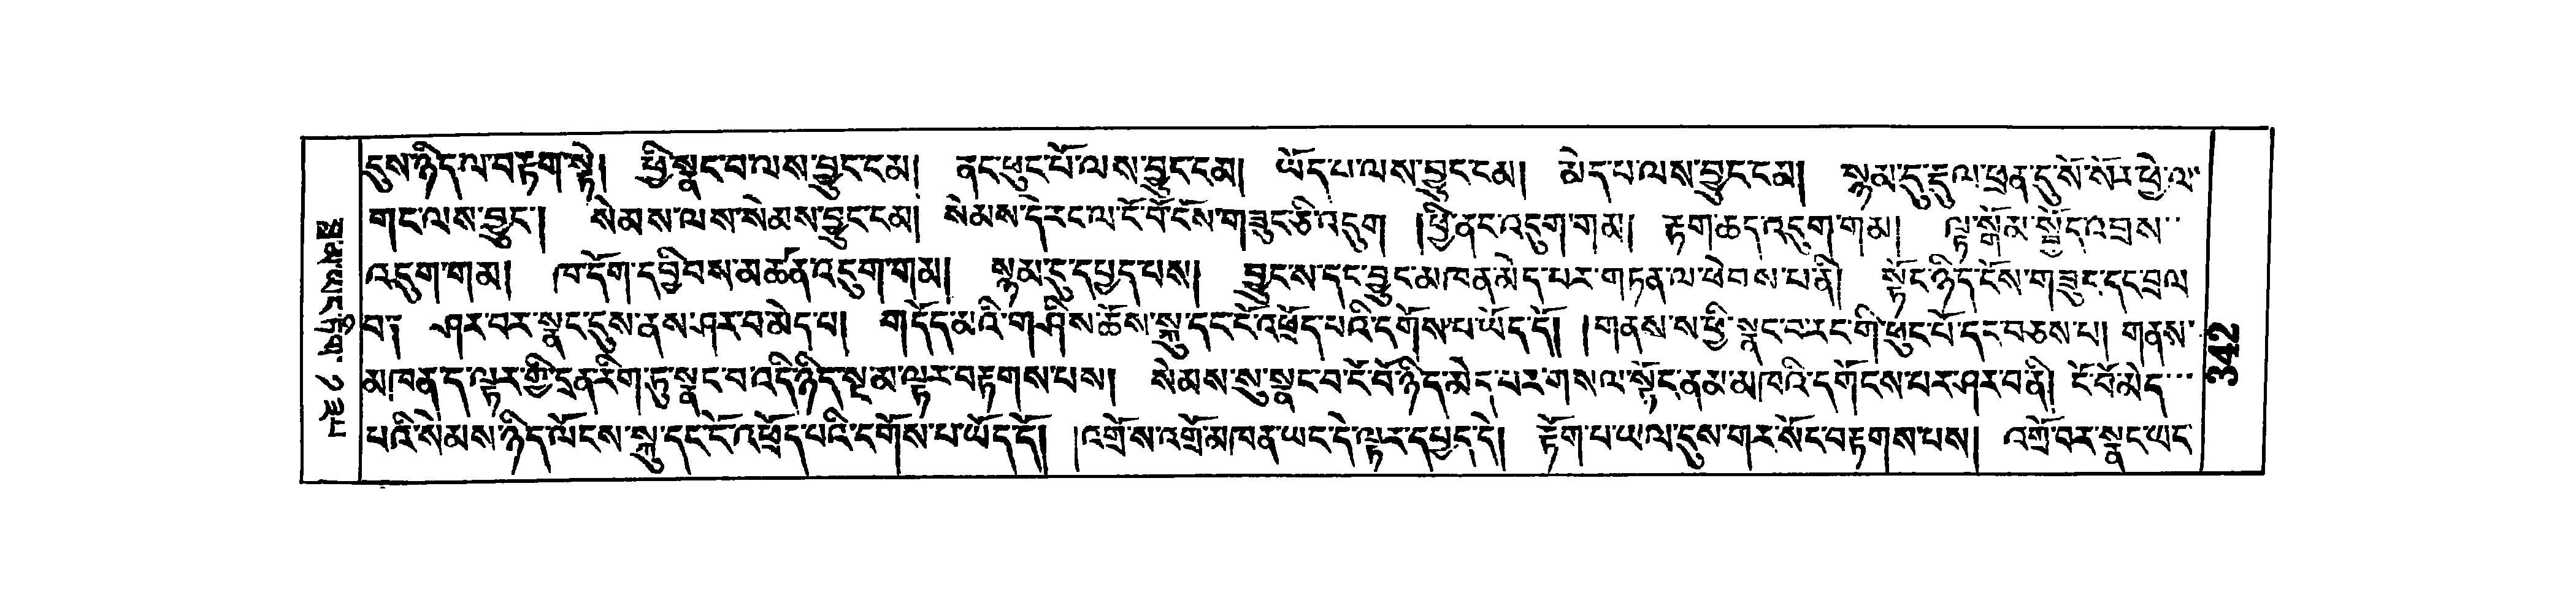 དུས་ཉིད་ལ་བརྟག་སྟེ། ཕྱི་སྣང་བ་ལས་བྱུང་ངམ། ནང་ཕུང་པོ་ལས་བྱུང་ངམ། ཡོད་པ་ལས་བྱུང་ངམ། མེད་པ་ལས་བྱུང་ངམ། སྙམ་དུ་རྡུལ་ཕྲན་དུ་སོ་སོར་ཕྱེ་ལ་
གང་ལས་བྱུང་། སེམས་ལས་སེམས་བྱུང་ངམ། སེམས་དེ་རང་ལ་ངོ་བོ་ངོས་གཟུང་ཅི་འདུག །ཕྱི་ནང་འདུག་གམ། རྟག་ཆད་འདུག་གམ། ལྟ་སྒོམ་སྤྱོད་འབྲས་
འདུག་གམ། ཁ་དོག་དབྱིབས་མཚན་འདུག་གམ། སྙམ་དུ་དཔྱད་པས། བྱུང་ས་དང་བྱུང་མཁན་མེད་པར་གཏན་ལ་ཕེབས་པ་ནི། སྟོང་ཉིད་ངོས་གཟུང་དང་བྲལ་
བ་། ཤར་བར་སྣང་དུས་ནས་ཤར་བ་མེད་པ། གདོད་མའི་གཤིས་ཆོས་སྐུ་དང་ངོ་འཕྲོད་པའི་དགོས་པ་ཡོད་དོ། །གནས་ས་ཕྱི་སྣང་བ་རང་གི་ཕུང་པོ་དང་བཅས་པ། གནས་
མཁན་ད་ལྟར་གྱི་དྲན་རིག་ཏུ་སྣང་བ་འདི་ཉིད་སྔམ་ལྟར་བརྟགས་པས། སེམས་སུ་སྣང་བ་ངོ་བོ་ཉིད་མེད་པར་གསལ་སྟོང་ནམ་མཁའི་དགོངས་པར་ཤར་བ་ནི། ངོ་བོ་མེད་
པའི་སེམས་ཉིད་ལོངས་སྐུ་དང་ངོ་འཕྲོད་པའི་དགོས་པ་ཡོད་དོ། །འགྲོ་ས་འགྲོ་མཁན་ཡང་དེ་ལྟར་དཔྱད་དེ། རྟོག་པ་ཡལ་དུས་གར་སོང་བརྟགས་པས། འགྲོ་བར་སྣང་ཡང་